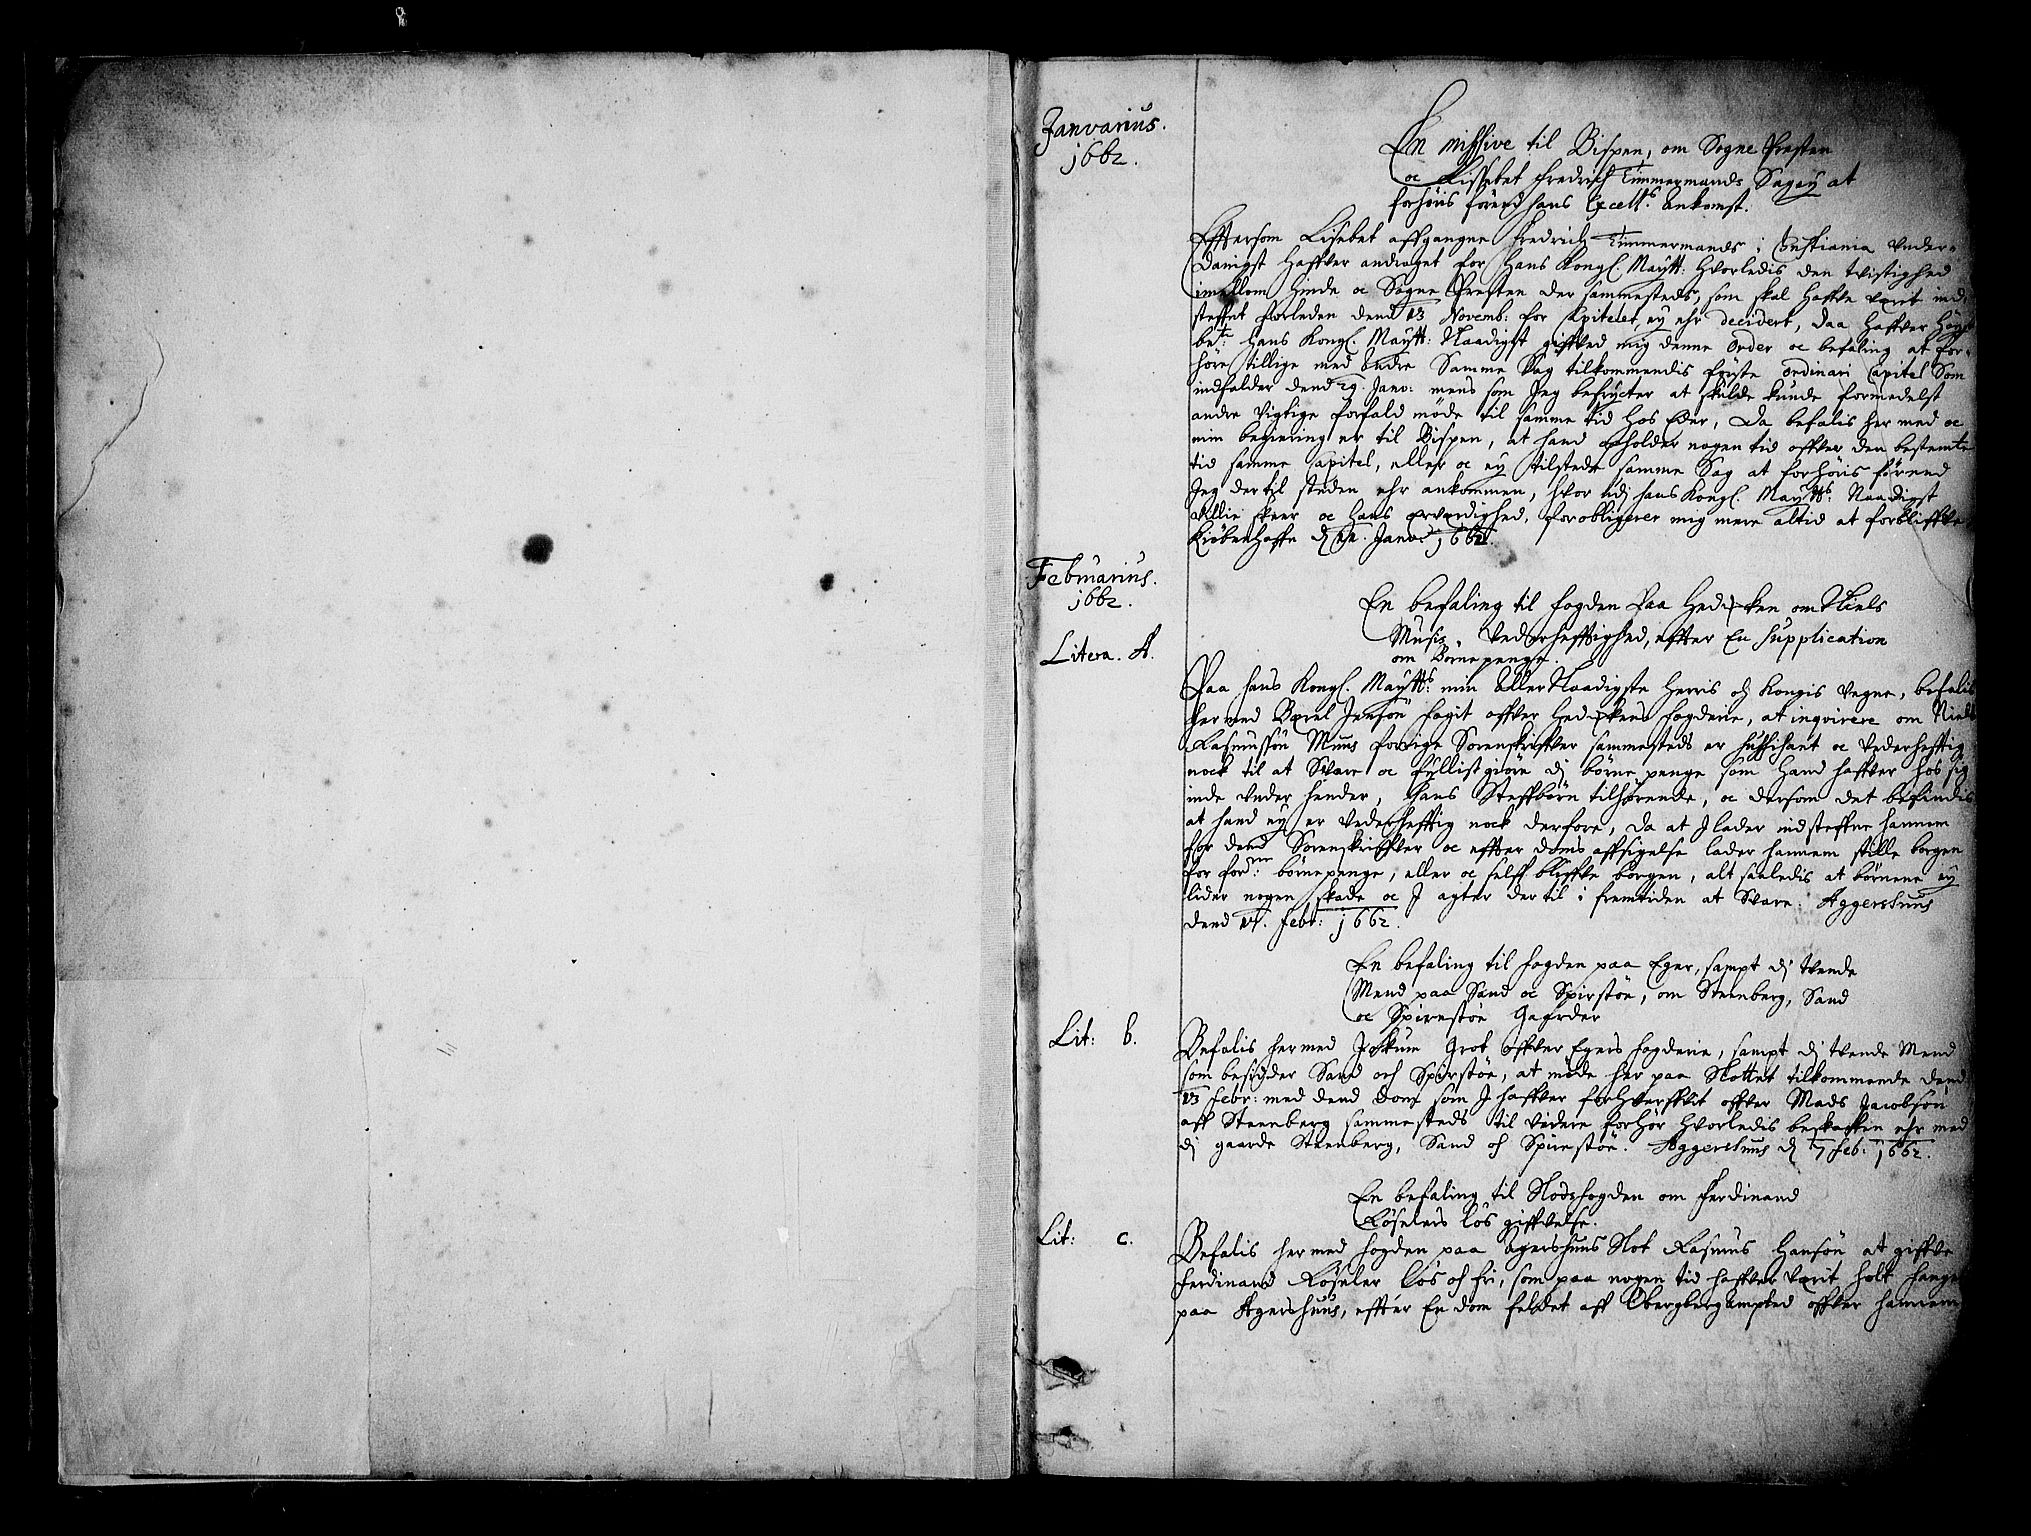 Janvarius.
1662.
En missive til Bispen, om Sogne Presten
oc Lissebet Fredrich Timmermands Sag ey at
forhöris förend hans Excell.s ankomst.
Efftersom Lisebet affgangne Fredrich Timmermands i Christiania vnder-
danigst haffver andraget for Hans Kongl. Maytt: hvorledis den tvistighed
imellom hinde oc Sogne Presten der sammesteds, som skal haffve verit ind-
steffnet forleden dend 13 Novemb: for Capitelet, ey ehr decidert, daa haffver höy-
be.te Hans Kongl. Maytt: Naadigst giffved mig denne order oc befaling at for-
höre tillige med andre Samme Sag tilkommendis förste ordinari Capitel Som
indfalder dend 29. Janv: mens som Jeg befrycter at skulde kunde formedelst
andre vigtige forfald möde til samme tid hos Eder, Da befalis her med oc
min begiering er til Bispen, at hand opholder nogen tid offver den bestemte
tid samme Capitel, eller oc ey tilstede samme Sag at forhöris förend
Jeg der til steden ehr ankommen, hvor udj hans Kongl. Maytts: Naadigst
villie skeer oc hans ærværdighed, forobligerer mig mere altid at forbliffve
Kiöbenhaffn d. Janv: 1662.
Februarius.
1662.
En befaling til fogden paa Hedemarken om Niels
Musis Vederhefftighed, effter En Supplication
om Börnepenge.
Litera. A.
Paa hans Kongl. Maytts: min Aller Naadigste Herris och Kongis Vegne, befalis
hermed Jensön fogit offver Hedemarkens fogderie, at inqvirere om Niels
Rasmussön Muus forrige Sorenskriffver sammesteds er sufficant oc vederhefftig
nock til at Svare oc fyllist giöre dj börne penge som hand haffver hos sig
inde vnder hender, hans Steffbörn tilhörende, oc dersom det befindis
at hand ey er vederhefftig nock derfore, da at J lader indsteffne hannem
for dend Sorenskriffver oc effter doms affsigelse lader hannem stille borgen
for for.ne: börnepenge, eller oc selff bliffve borgen, alt saaledis at börnene ey
lider nogen skade oc J agter der til i fremtiden at Svare. Aggershuus
dend 17. Febr: 1662.
En befaling til fogden paa Eger, sampt dj tvende
Mend paa Sand oc Spirstöe, om Steenberg, Sand
oc Spirestöe Gaarder
Lit: b.
Befalis hermed Jochum Grot offver Egers fogderie, sampt dj tvende Mend
som besidder Sand och Spirstöe, at möde her paa Slottet tilkommende dend
13 Febr: med dend dom som J haffver forhverffvit offver Mads Jacobsön
aff Steenberg sammesteds til videre forhör hvorledis beskaffen ehr med
dj gaarde Steenberg, Sand och Spirestöe. Aggershuus d. 7 Feb: 1662.
En befaling til Slodsfogden om Ferdinand
Röselers lös giffvelse.
Lit: c.
Befalis hermed fogden paa Agershuus Slot Rasmus Hansön at giffve
Ferdinand Röseler lös och fri, som paa nogen tid haffver verit holt fangen
paa Agershuus, effter En dom feldet aff Oberbergampted offver hannem